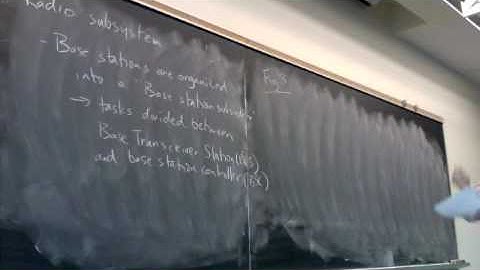 radio subsystem
- Base stations are organized
into a Base station subsystem
→ tasks divided between
Base Transceiver Station (BTS)
and base station controller (BSC)
Fig 3